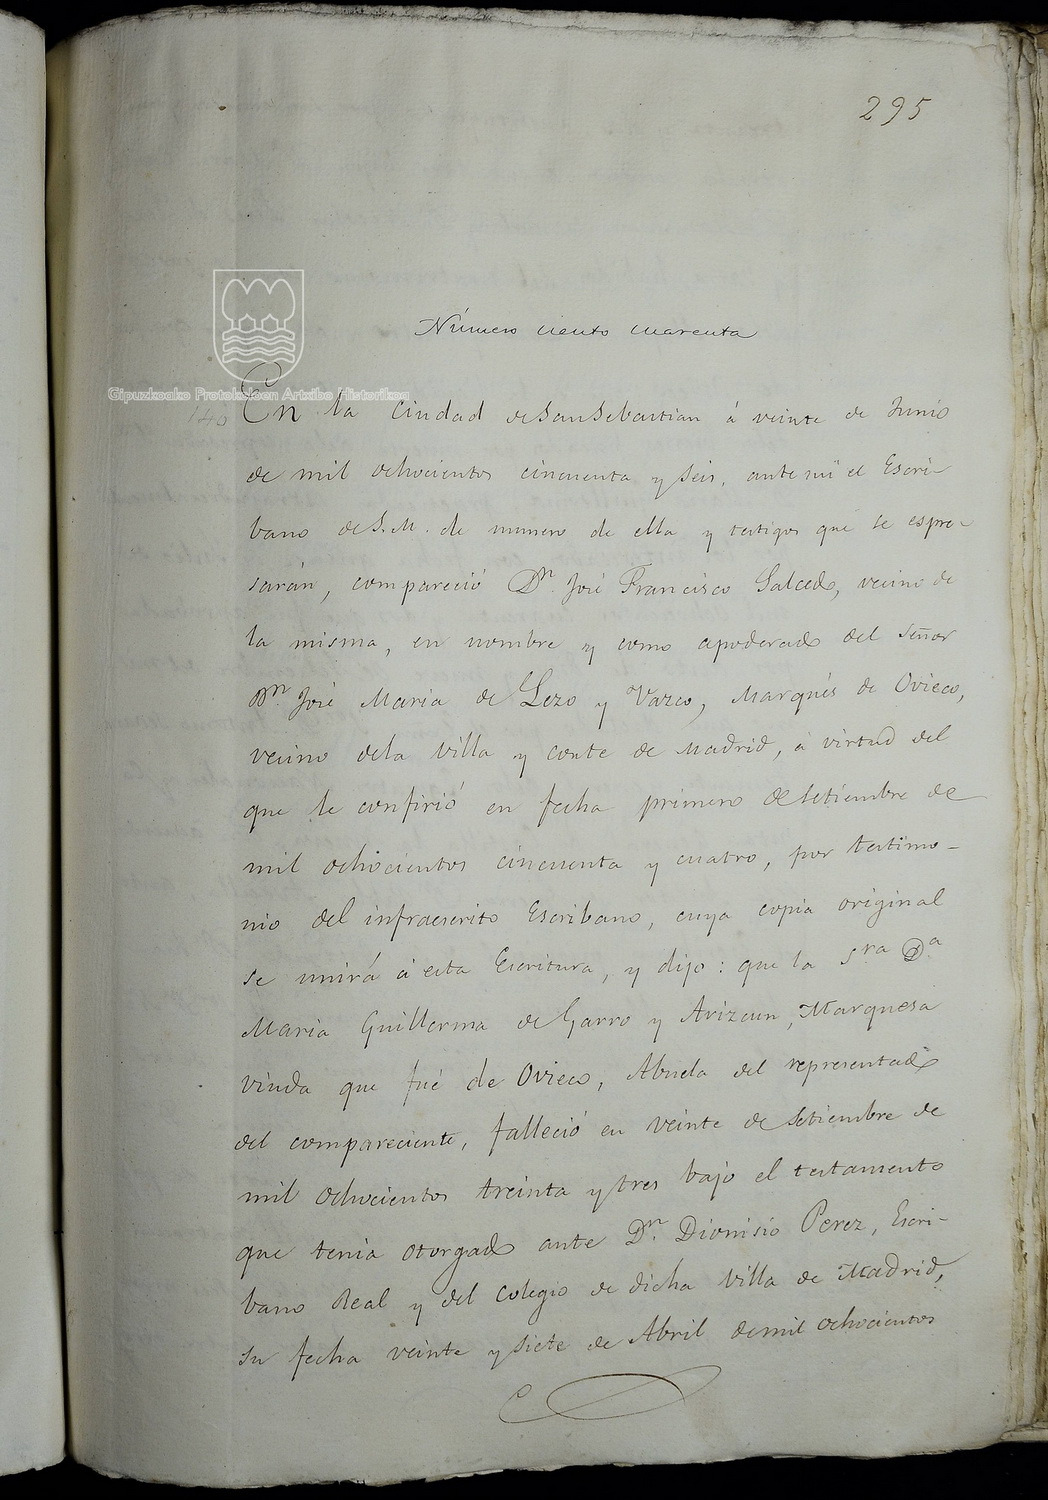 295
Número ciento cuarenta
Gipuzkoako Protokoloen Artxibo Historikoa
140 En la Ciudad de San Sebastian á veinte de Junio
de mil ochocientos cincuenta y seis, ante mi el Escri-
bano de S. M. de numero de ella y testigos que se espre-
sarán, compareció Dn. José Francisco Salcedo, vecino de
la misma, en nombre y como apoderado del Señor
Dn. José Maria de Lezo y Vasco, Marqués de Ovieco,
vecino de la Villa y corte de Madrid, á virtud del
que le confirió en fecha primero de Setiembre de
mil ochocientos cincuenta y cuatro, por testimo-
nio del infraescrito Escribano, cuya copia original
se unirá á esta Escritura, y dijo: que la Sra Da.
Maria Guillerma de Garro y Arizcun, Marquesa
viuda que fué de Ovieco, Abuela del representado
del compareciente, falleció en veinte de Setiembre de
mil ochocientos treinta y tres bajo el testamento
que tenia otorgado ante Dn. Dionisio Perez, Escri-
bano Real y del Colegio de dicha Villa de Madrid,
su fecha veinte y siete de Abril de mil ochocientos